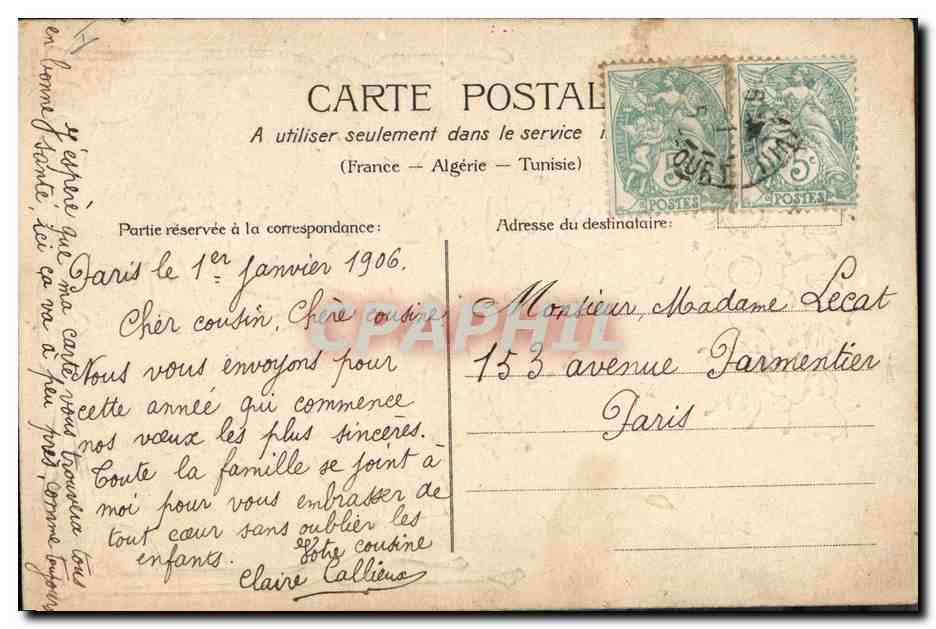 CARTE POSTAL
A utiliser seulement dans le service
(France — Algérie — Tunisie)
5c
POSTES
5c
POSTES
Partie réservée à la correspondance:
Adresse du destinataire:
Paris le 1er Janvier 1906.
Cher cousin, Chère cousine,
Nous vous envoyons pour
cette année qui commence
nos vœux les plus sincères.
Toute la famille se joint à
moi pour vous embrasser de
tout cœur sans oublier les
enfants. Votre cousine
Claire Callieux
J'espère que ma carte vous trouvera tous
en bonne santé, ici ça va à peu près, comme toujours
Monsieur, Madame Lecat
153 avenue Parmentier
Paris
CPAPHIL